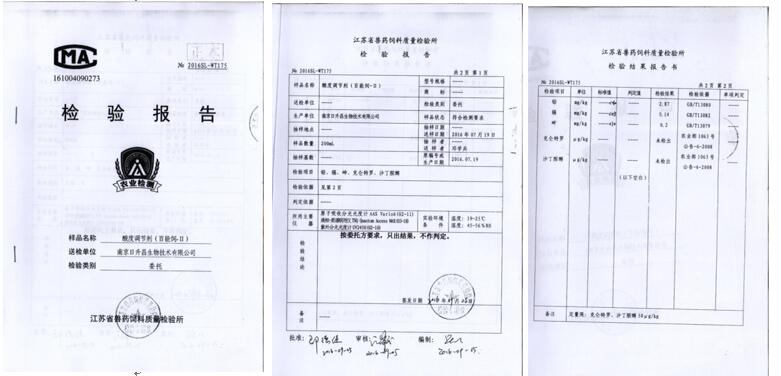 CMA
161004090273
正本
№ 2016SL-WT175
检 验 报 告
农业检测
样品名称 酸度调节剂（百能饲-II）
送检单位 南京日升昌生物技术有限公司
检验类别 委托
江苏省兽药饲料质量检验所
江苏省兽药饲料质量检验所
检 验 报 告
№ 2016SL-WT175 共 2 页 第 1 页
样品名称 酸度调节剂（百能饲-II） 型号规格 ——
商 标 ——
送检单位 —— 检验类别 委托
生产单位 南京日升昌生物技术有限公司 样品状态 符合检测要求
抽样地点 —— 抽样日期 ——
送样日期 2016 年 07 月 19 日
样品数量 200mL 抽 样 者 ——
送 样 者 邓学兵
抽样基数 —— 原编号或
生产日期 2016.07.19
检验项目 铅、镉、砷、克仑特罗、沙丁胺醇
检验依据 见第 2 页
判定依据 ——
所用主要
仪 器
原子吸收分光光度计 AAS Vario6(02-11)
实验环境
条 件
温度：19-25℃
湿度：45-56%RH
检验结论
按委托方要求，只出结果，不作判定。
签发日期
备注 ——
批准： 审核： 编制：
2016-09-05 2016-09-05 2016-09-05.
江苏省兽药饲料质量检验所
检 验 结 果 报 告 书
№ 2016SL-WT175 共 2 页 第 2 页
检验项目 单位 标准值 判定值 检验结果 检验依据 单项判定
铅 mg/kg —— —— 2.87 GB/T13080 ——
镉 mg/kg —— —— 0.14 GB/T13082 ——
砷 mg/kg —— —— 0.2 GB/T13079 ——
克仑特罗 μg/kg —— —— 未检出 农业部 1063 号
公告-6-2008 ——
沙丁胺醇 μg/kg —— —— 未检出 农业部 1063 号
公告-6-2008 ——
（以下空白）
备注 定量限：克仑特罗、沙丁胺醇 50μg/kg